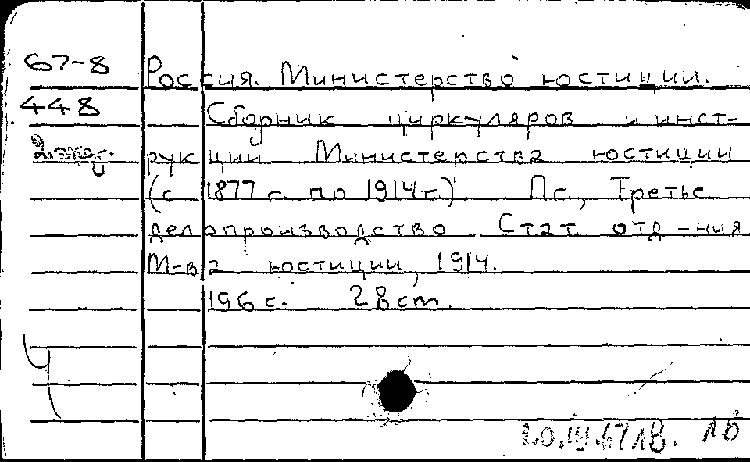 67-8 Россия. Министерство юстиции.
448 Сборник циркуляров и инст-
рукций Министерства юстиции
(с 1877 г. по 1914 г.) Пг., Третье
делопроизводство Стат. отд-ния
М-ва юстиции, 1914.
196 с. 28 cm.
Ч